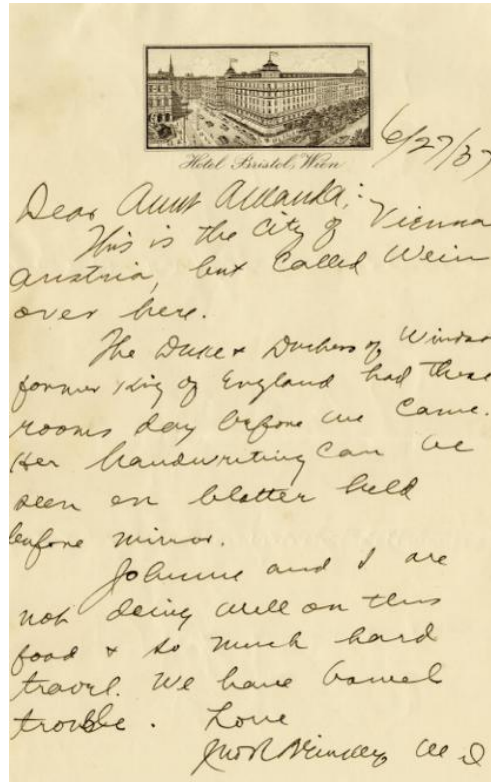 Hotel Bristol, Wien
6/27/37
Dear Aunt Amanda:
This is the City of Vienna
Austria, but called Wein
over here.
The Duke & Duchess of Windsor
former King of England had these
rooms day before we came.
Her handwriting can be
seen on blotter held
before mirror.
Johnnie and I are
not doing well on this
food & so much hard
travel. We have bowel
trouble. Love
Jno R Brinkley M D